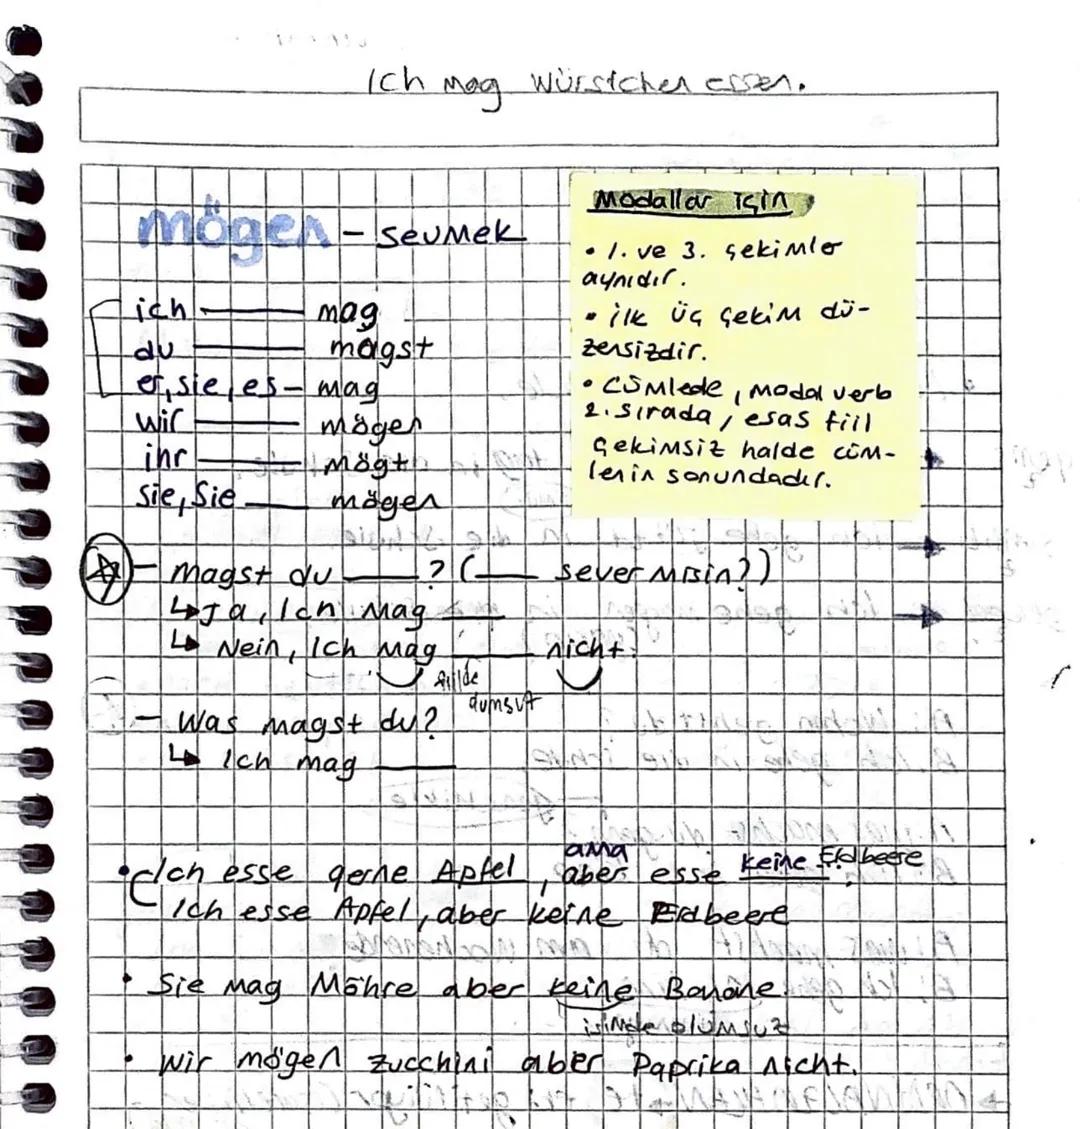 Ich mag Würstchen essen.
mögen - sevmek
ich mag
du magst
er, sie, es - mag
wir mögen
ihr mögt
sie, Sie mögen
Modallar için
• 1. ve 3. çekimler
aynıdır.
• ilk üç çekim dü-
zensizdir.
• Cümlede, modal verb
2. sırada, esas fiil
çekimsiz halde cüm-
lenin sonundadır.
- magst du ___? (___ sever misin?)
↳ Ja, Ich mag ___
↳ Nein, Ich mag ___ nicht.
fiilde
- Was magst du?
↳ Ich mag ___
ama
• Ich esse gerne Apfel, aber esse keine Erdbeere.
Ich esse Apfel, aber keine Erdbeere
• Sie mag Möhre aber keine Banane.
isimde olumsuz
• Wir mögen Zucchini aber Paprika nicht.